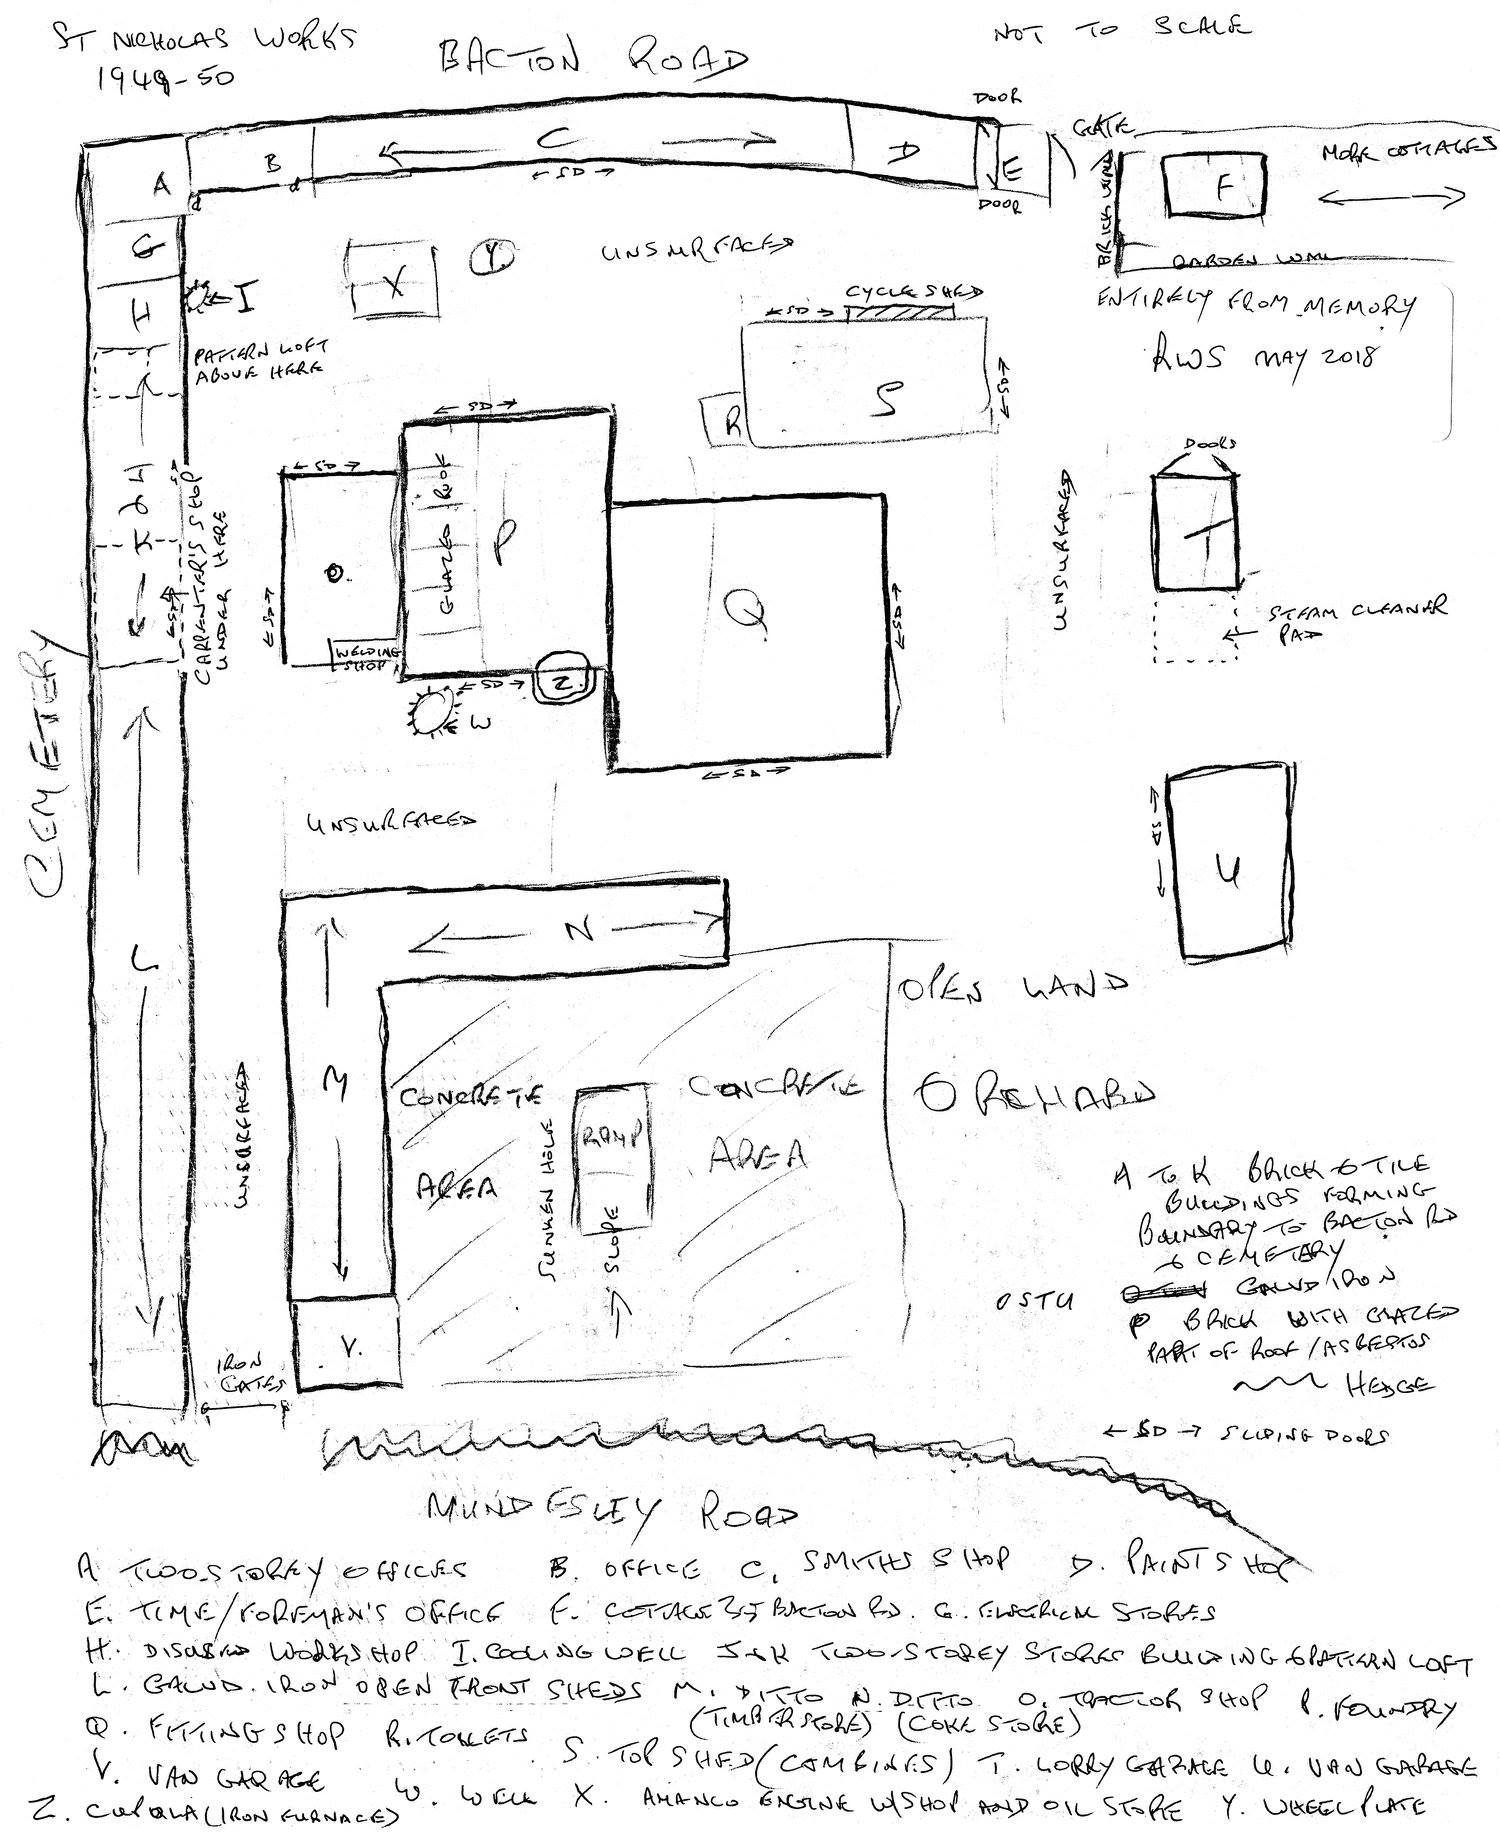 ST NICHOLAS WORKS
1949-50
BACTON ROAD
NOT TO SCALE
DOOR
GATE
MORE COTTAGES
A
B
d
d
C
← SD →
D
E
DOOR
BRICK WALL
F
GARDEN WALL
G
H
I
X
Y
UNSURFACED
ENTIRELY FROM MEMORY
RWS MAY 2018
PATTERN LOFT
ABOVE HERE
← SD →
CYCLE SHED
S
← SD →
R
J & K
SD
← SD →
CARPENTER'S SHOP
UNDER HERE
← SD →
O.
← SD →
WELDING
SHOP
← SD →
GLAZED ROOF
P
← SD →
Z
W
Q
← SD →
← SD →
UNSURFACED
DOORS
T
STEAM CLEANER
PAD
CEMETERY
L
UNSURFACED
← SD →
U
N
M
V.
OPEN LAND
ORCHARD
CONCRETE
AREA
CONCRETE
AREA
RAMP
SUNKEN HOLE
SLOPE
UNSURFACED
IRON
GATES
A TO K BRICK & TILE
BUILDINGS FORMING
BOUNDARY TO BACTON RD
& CEMETARY
O STU GALVD IRON
P BRICK WITH GLAZED
PART OF ROOF / ASBESTOS
HEDGE
← SD → SLIDING DOORS
MUNDESLEY ROAD
A TWO-STOREY OFFICES B. OFFICE C. SMITHS SHOP D. PAINT SHOP
E. TIME/FOREMAN'S OFFICE F. COTTAGE BACTON RD. G. ELECTRICAL STORES
H. DISUSED WORKSHOP I. COOLING WELL J & K TWO-STOREY STORES BUILDING & PATTERN LOFT
L. GALVD. IRON OPEN FRONT SHEDS M. DITTO N. DITTO O. TRACTOR SHOP P. FOUNDRY
(TIMBER STORE) (COKE STORE)
Q. FITTING SHOP R. TOILETS S. TOP SHED (COMBINES) T. LORRY GARAGE U. VAN GARAGE
V. VAN GARAGE W. WELL X. AMANCO ENGINE W/SHOP AND OIL STORE Y. WHEEL PLATE
Z. CUPOLA (IRON FURNACE)